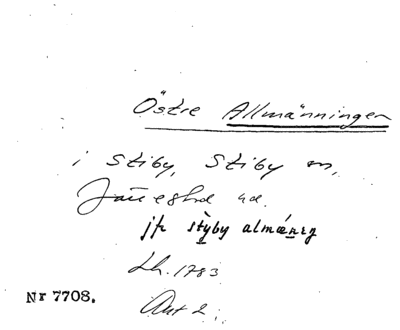 Östre Allmänningen
i Stiby, Stiby sn,
Järrestad hd.
jfr stỳby almánıŋ
Lh. 1783
Akt 2.
Nr 7708.